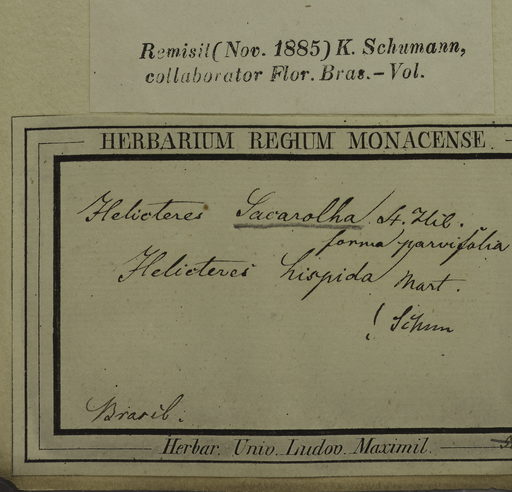 Remisit (Nov. 1885) K. Schumann,
collaborator Flor. Bras. – Vol.
HERBARIUM REGIUM MONACENSE.
Helicteres Sacarolha St. Hil.
forma parvifolia
Helicteres hispida Mart.
! Schum
Brasil.
Herbar. Univ. Ludov. Maximil.